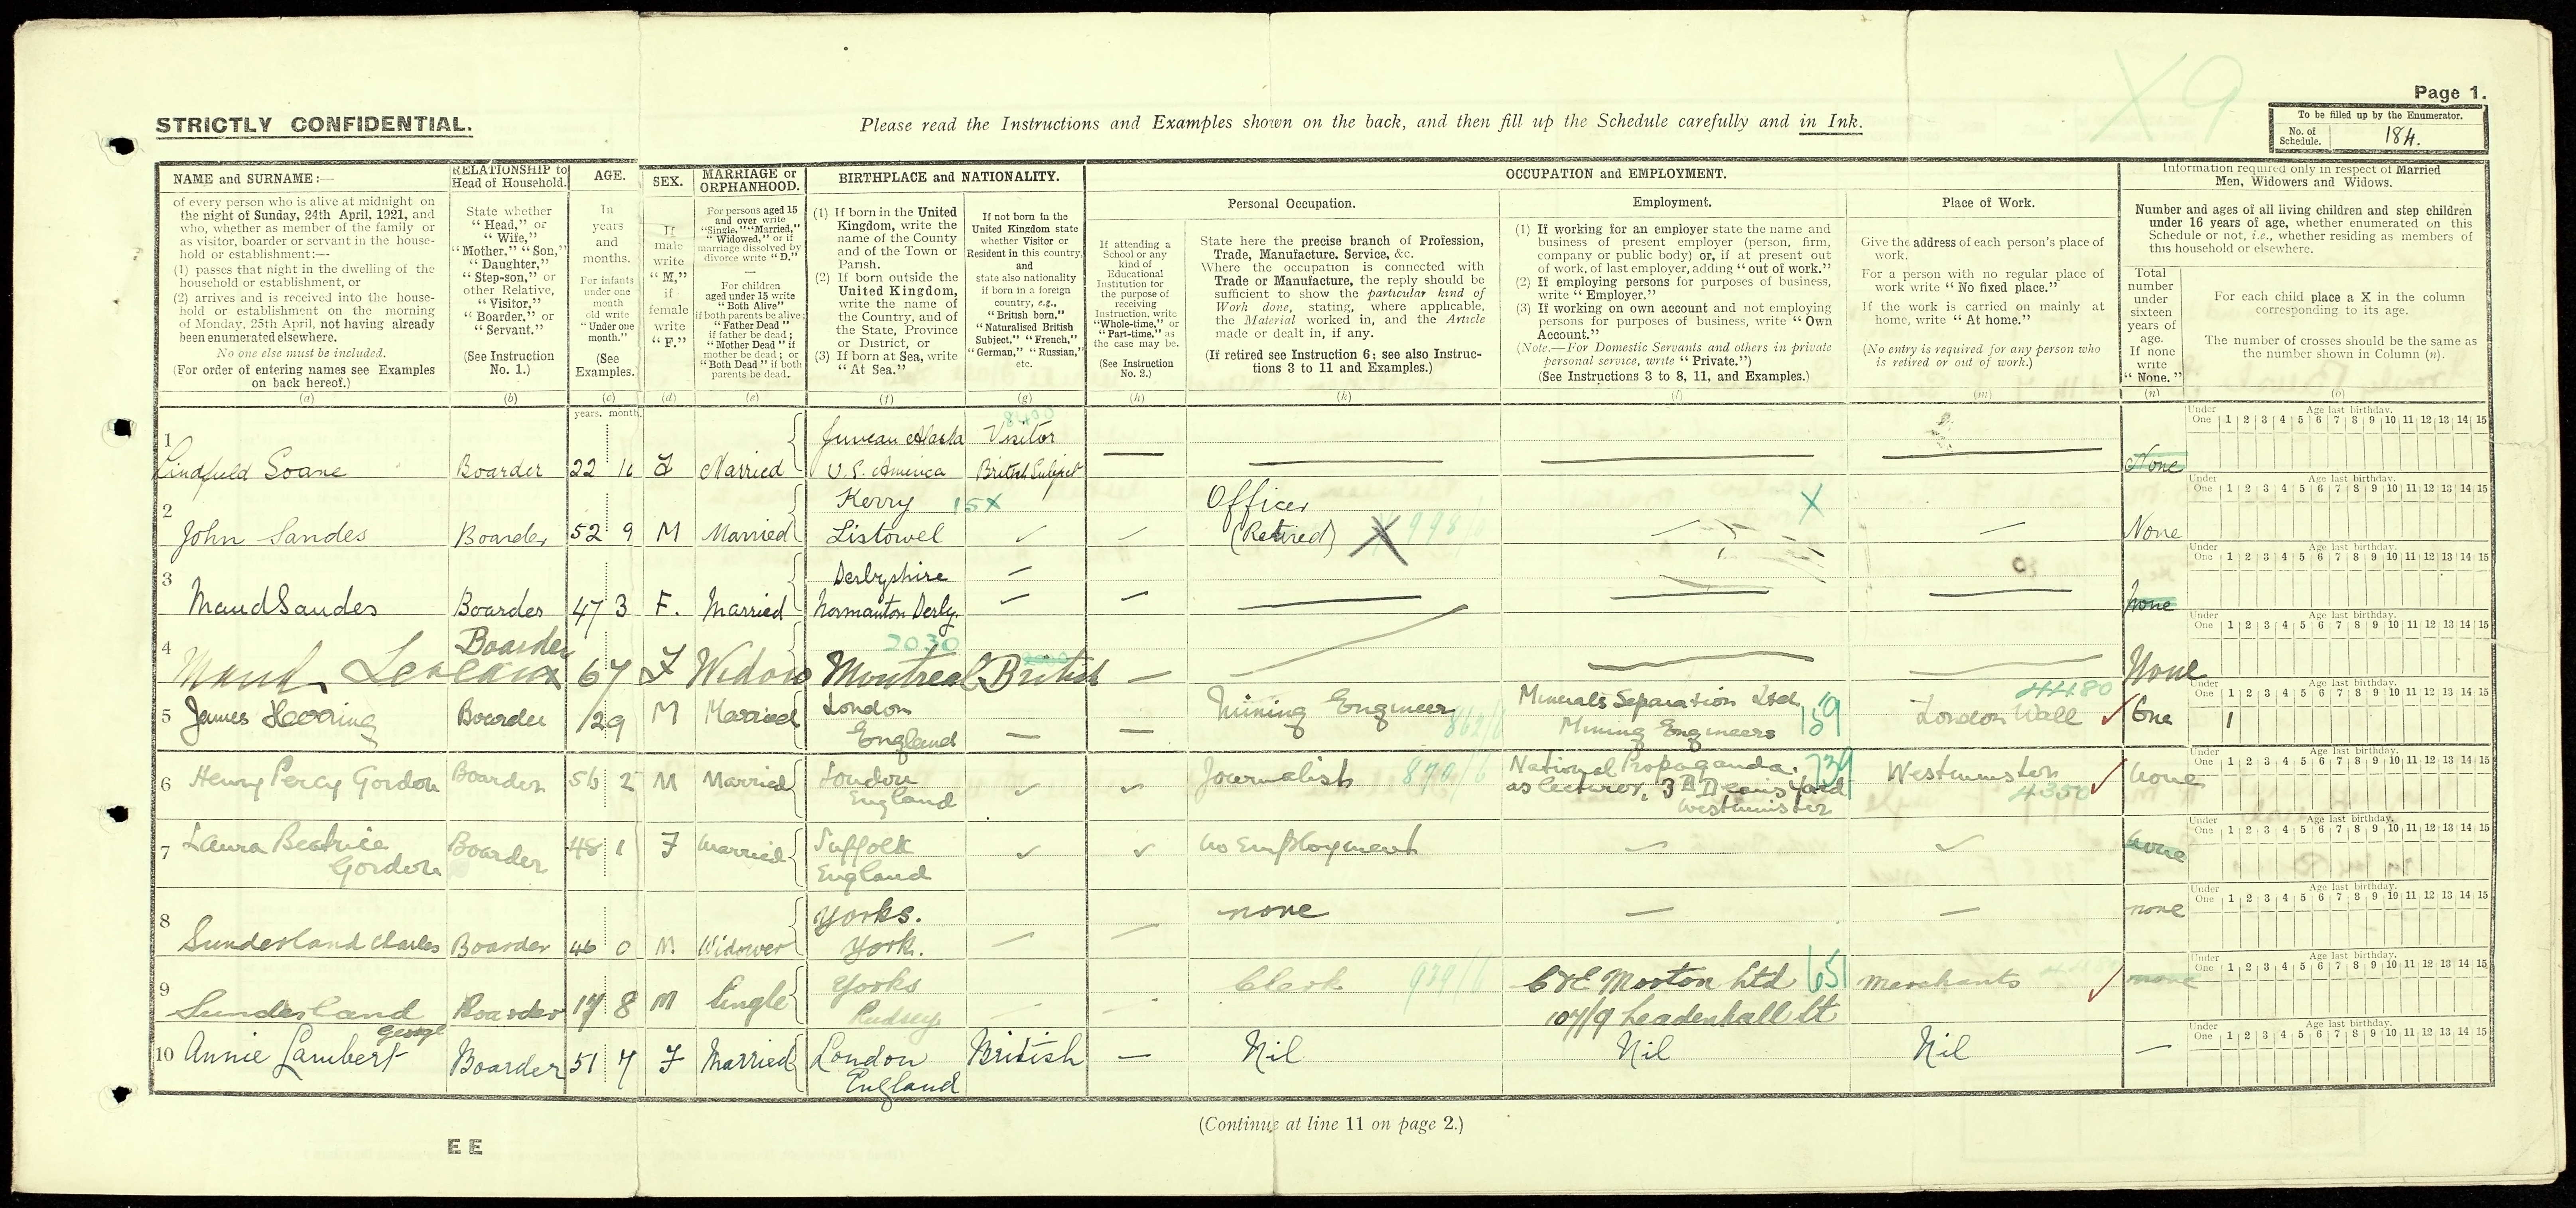 Page 1.
STRICTLY CONFIDENTIAL.
Please read the Instructions and Examples shown on the back, and then fill up the Schedule carefully and in Ink.
To be filled up by the Enumerator.
No. of Schedule.
184.
X 9
NAME and SURNAME:—
of every person who is alive at midnight on
the night of Sunday, 24th April, 1921, and
who, whether as member of the family or
as visitor, boarder or servant in the house-
hold or establishment:—
(1) passes that night in the dwelling of the
household or establishment, or
(2) arrives and is received into the house-
hold or establishment on the morning
of Monday, 25th April, not having already
been enumerated elsewhere.
No one else must be included.
(For order of entering names see Examples
on back hereof.)
(a)
RELATIONSHIP to
Head of Household.
State whether
"Head," or
"Wife,"
"Mother," "Son,"
"Daughter,"
"Step-son," or
other Relative,
"Visitor,"
"Boarder," or
"Servant."
(See Instruction
No. 1.)
(b)
AGE.
In
years
and
months.
For infants
under one
month
old write
"Under one
month."
(See
Examples.)
(c)
SEX.
If
male
write
"M,"
if
female
write
"F."
(d)
MARRIAGE or
ORPHANHOOD.
For persons aged 15
and over write
"Single," "Married,"
"Widowed," or if
marriage dissolved by
divorce write "D."
—
For children
aged under 15 write
"Both Alive"
if both parents be alive;
"Father Dead"
if father be dead;
"Mother Dead" if
mother be dead; or
"Both Dead" if both
parents be dead.
(e)
BIRTHPLACE and NATIONALITY.
(1) If born in the United
Kingdom, write the
name of the County
and of the Town or
Parish.
(2) If born outside the
United Kingdom,
write the name of
the Country, and of
the State, Province
or District, or
(3) If born at Sea, write
"At Sea."
(f)
If not born in the
United Kingdom state
whether Visitor or
Resident in this country,
and
state also nationality
if born in a foreign
country, e.g.,
"British born,"
"Naturalised British
Subject," "French,"
"German," "Russian,"
etc.
(g)
OCCUPATION and EMPLOYMENT.
Personal Occupation.
If attending a
School or any
kind of
Educational
Institution for
the purpose of
receiving
Instruction, write
"Whole-time," or
"Part-time," as
the case may be.
(See Instruction
No. 2.)
(h)
State here the precise branch of Profession,
Trade, Manufacture, Service, &c.
Where the occupation is connected with
Trade or Manufacture, the reply should be
sufficient to show the particular kind of
Work done, stating, where applicable,
the Material worked in, and the Article
made or dealt in, if any.
(If retired see Instruction 6; see also Instruc-
tions 3 to 11 and Examples.)
(k)
Employment.
(1) If working for an employer state the name and
business of present employer (person, firm,
company or public body) or, if at present out
of work, of last employer, adding "out of work."
(2) If employing persons for purposes of business,
write "Employer."
(3) If working on own account and not employing
persons for purposes of business, write "Own
Account."
(Note.—For Domestic Servants and others in private
personal service, write "Private.")
(See Instructions 3 to 8, 11, and Examples.)
(l)
Place of Work.
Give the address of each person's place of
work.
For a person with no regular place of
work write "No fixed place."
If the work is carried on mainly at
home, write "At home."
(No entry is required for any person who
is retired or out of work.)
(m)
Information required only in respect of Married
Men, Widowers and Widows.
Number and ages of all living children and step children
under 16 years of age, whether enumerated on this
Schedule or not, i.e., whether residing as members of
this household or elsewhere.
Total
number
under
sixteen
years of
age.
If none
write
"None."
(n)
For each child place a X in the column
corresponding to its age.
The number of crosses should be the same as
the number shown in Column (n).
(o)
years. month.
Under One
Age last birthday.
1 2 3 4 5 6 7 8 9 10 11 12 13 14 15
1
Lindfield Soane Boarder 22 10 F Married Juneau Alaska U.S. America Visitor British Subject — None
2
John Sandes Boarder 52 9 M Married Kerry Listowel 15X Officer (Retired) X None
3
Maud Sandes Boarder 47 3 F. Married Derbyshire Normanton Derby. — None
4
Maud Boarder 67 F Widow Montreal 2030 British — None
5
James Herring Boarder 29 M Married London England — Mining Engineer Minerals Separation Ltd. Mining Engineers 159 London Wall 4480 One 1
6
Henry Percy Gordon Boarder 56 2 M Married London England Journalist 870/6 National Propaganda. as lecturer, 3 Deans Yard Westminster 739 Westminster 4350 None
7
Laura Beatrice Gordon Boarder 48 1 F Married Suffolk England No Employment None
8
Sunderland Charles Boarder 46 0 M. Widower Yorks. York. — none — none
9
Sunderland George Boarder 17 8 M Single Yorks Pudsey Clerk 939/6 C & E Morton Ltd 107/9 Leadenhall St 651 Merchants none
10
Annie Lambert Boarder 51 7 F Married London England British — Nil Nil Nil —
(Continue at line 11 on page 2.)
E E